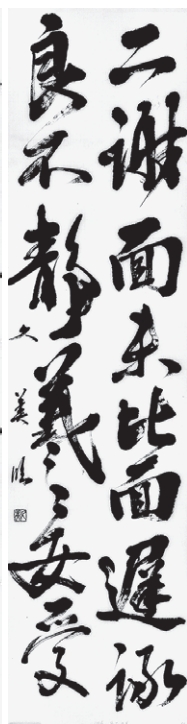 二謝面未比面遲詠
良不靜羲之女愛
久美臨